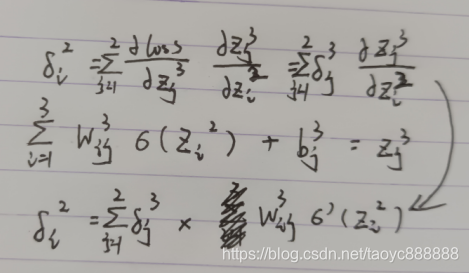 δᵢ² = Σⱼ₌₁² ∂loss/∂zⱼ³ ∂zⱼ³/∂zᵢ² = Σⱼ₌₁² δⱼ³ ∂zⱼ³/∂zᵢ²
Σᵢ₌₁³ Wᵢⱼ³ σ(zᵢ²) + bⱼ³ = zⱼ³
δᵢ² = Σⱼ₌₁² δⱼ³ × Wᵢⱼ³ σ'(zᵢ²)
https://blog.csdn.net/taoyc888888